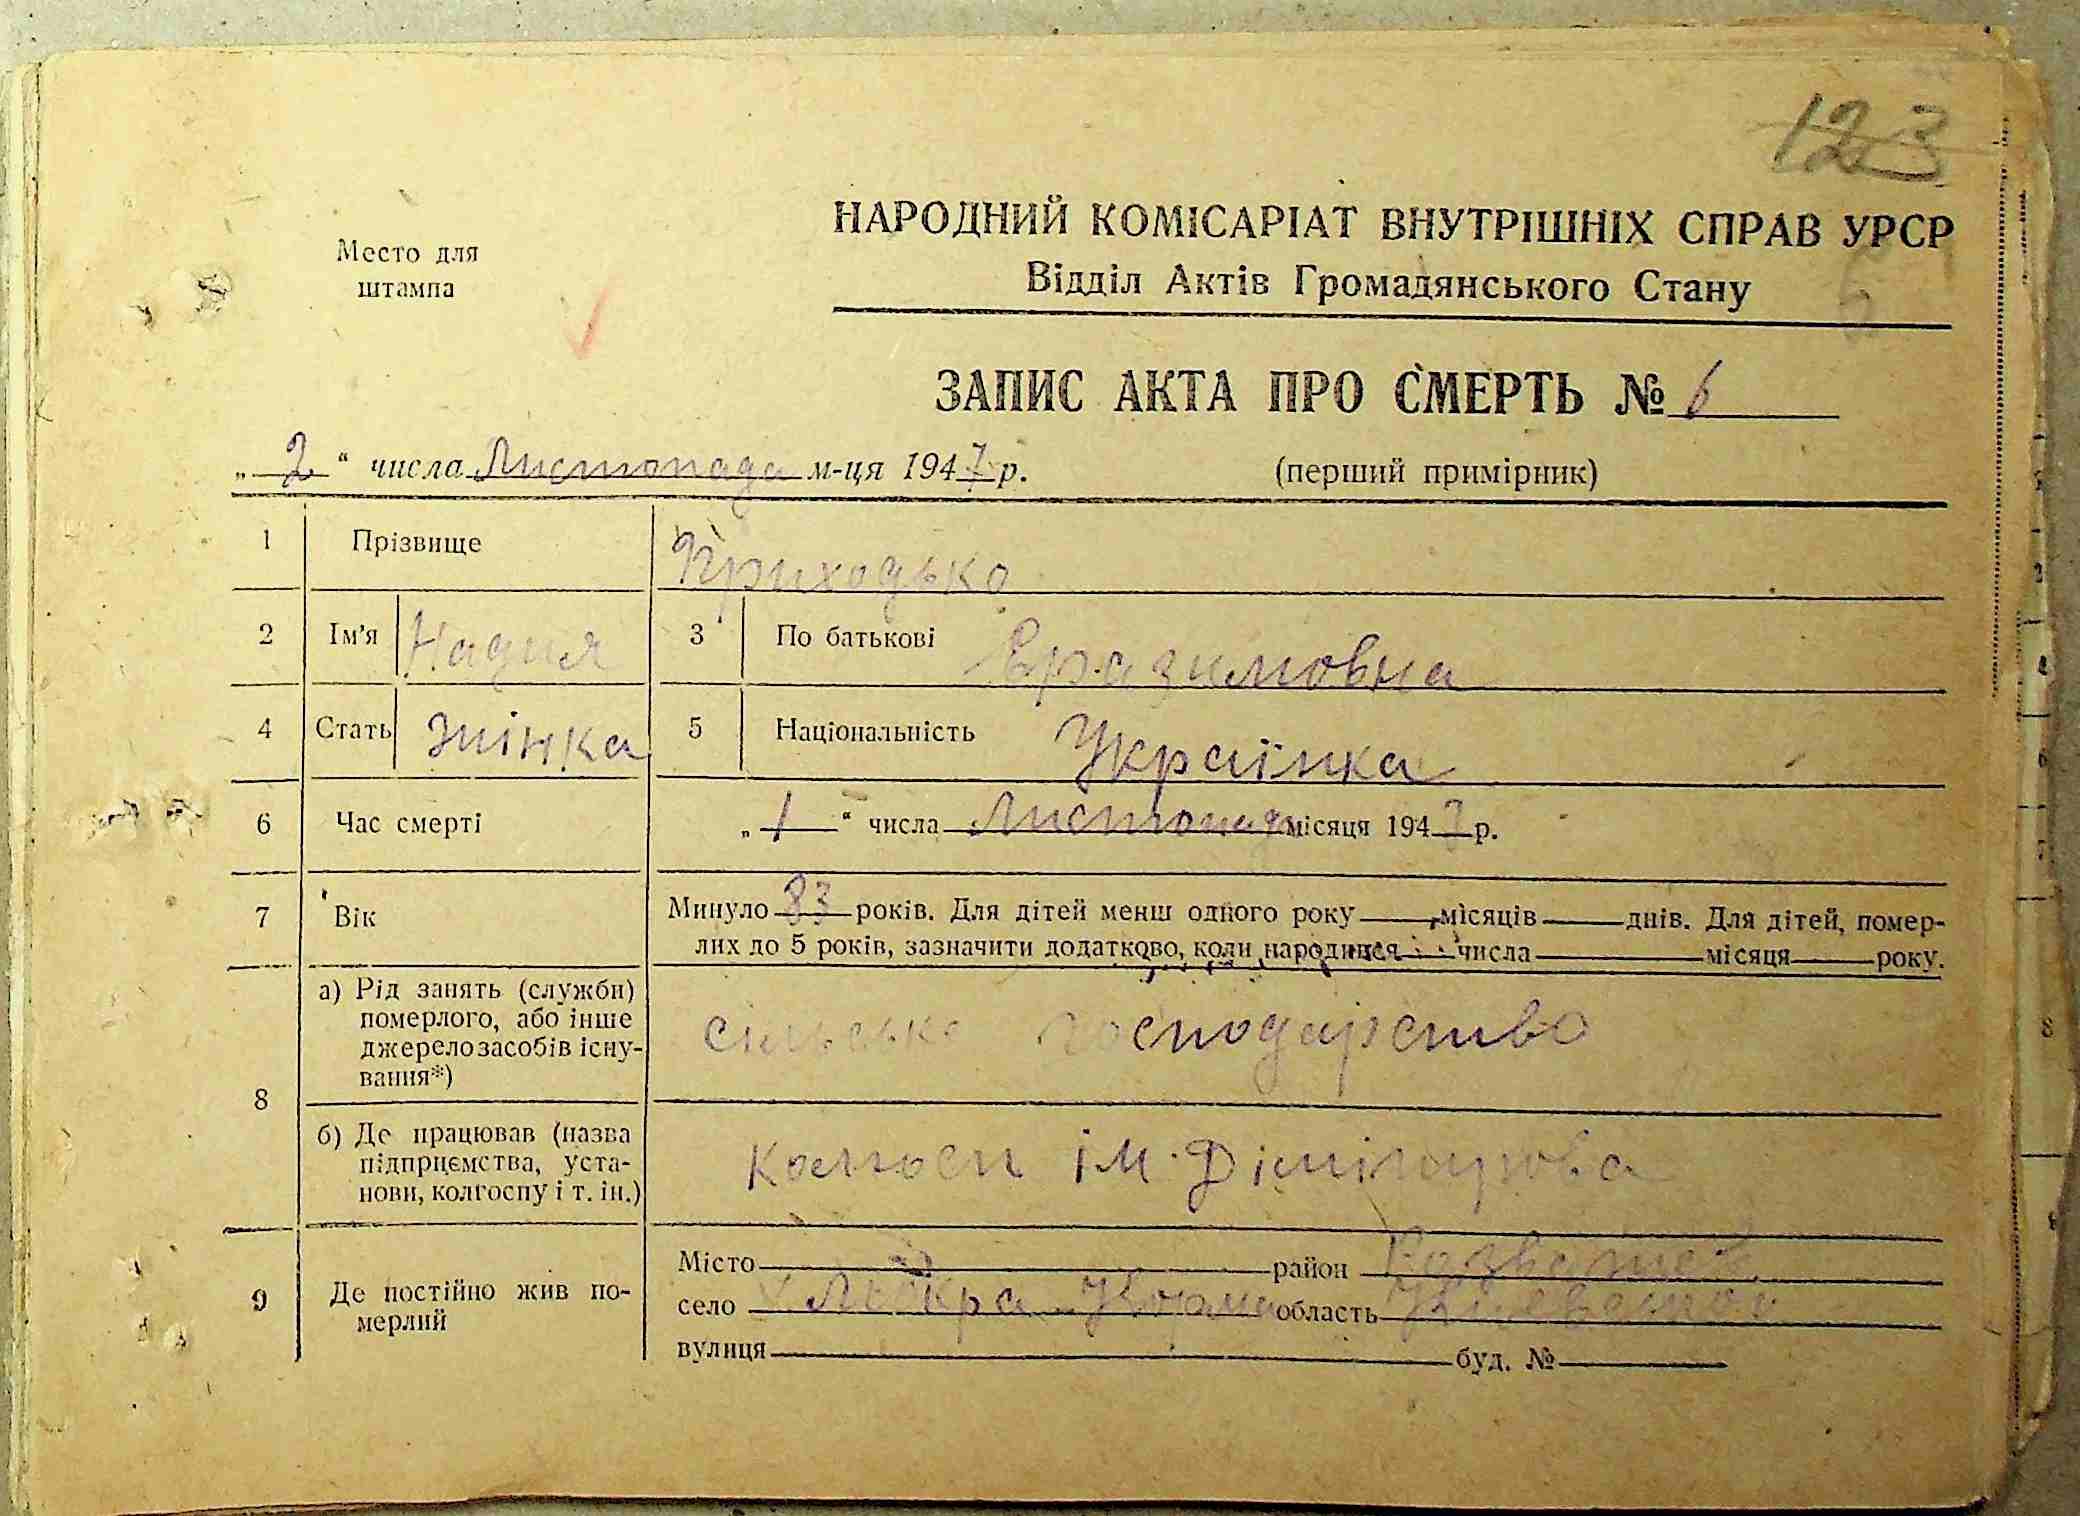 123
Место для
штампа
НАРОДНИЙ КОМІСАРІАТ ВНУТРІШНІХ СПРАВ УРСР
Відділ Актів Громадянського Стану
ЗАПИС АКТА ПРО СМЕРТЬ № 6
„ 2 “ числа Листопада м-ця 1947 р.
(перший примірник)
1 Прізвище Приходько
2 Ім’я Надия 3 По батькові Еразимовна
4 Стать жінка 5 Національність Українка
6 Час смерті „ 1 “ числа Листопада місяця 1947 р.
7 Вік Минуло 83 років. Для дітей менш одного року місяців днів. Для дітей, помер-
лих до 5 років, зазначити додатково, коли народився числа місяця року.
8 а) Рід занять (служби)
померлого, або інше
джерело засобів існу-
вання*)
сільське господарство
б) Де працював (назва
підприємства, уста-
нови, колгоспу і т. ін.)
колгосп ім. Дімітрова
9 Де постійно жив по-
мерлий
Місто район Розважев
село Мокра Корма область Киевской
вулиця буд. №